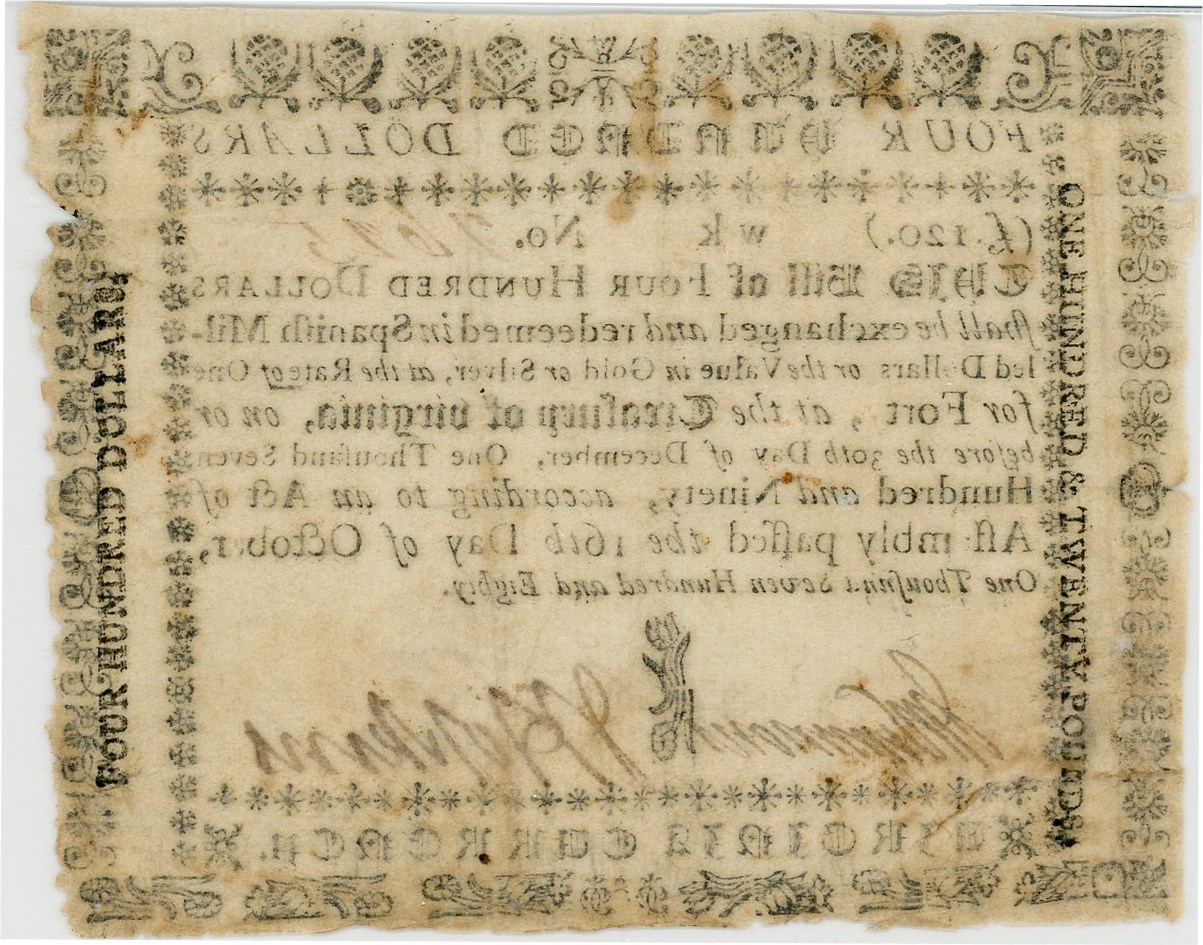 FOUR HUNDRED DOLLARS
(£.120.) w k No.
THIS Bill of FOUR HUNDRED DOLLARS
ſhall be exchanged and redeemed in Spaniſh Mil-
led Dollars or the Value in Gold or Silver, at the Rate of One
for Fort , at the Treaſury of virginia, on or
before the 30th Day of December, One Thouſand Seven
Hundred and Ninety, according to an Act of
Aſſ mbly paſſed the 16th Day of October,
One Thouſand Seven Hundred and Eighty.
VIRGINIA CURRENCY.
ONE HUNDRED & TWENTY POUNDS.
FOUR HUNDRED DOLLARS.